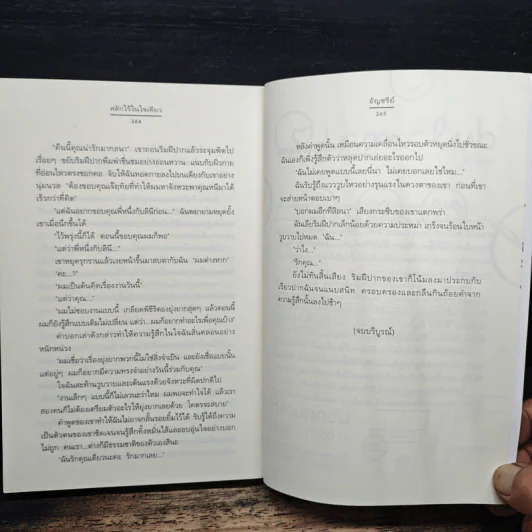 สลักไว้ในใจเดียว
364
"คืนนี้คุณน่ารักมากลนา" เขาถอนริมฝีปากแล้วระจุมพิตไป
เรื่อยๆ ขยับริมฝีปากพึมพำชื่นชมอย่างอ่อนหวาน แนบกับผิวกาย
ที่อ่อนไหวตรงซอกคอ จับให้ฉันทอดกายลงไปบนเตียงกับเขาอย่าง
นุ่มนวล "ต้องขอบคุณเจ๊ฤทัยที่ทำให้มหาจังหวะพาคุณหนีมาได้
เร็วกว่าที่คิด"
"แต่ฉันอยากขอบคุณพี่หนึ่งกับลินีก่อน..." ฉันพยายามหยุดยั้ง
เขาเมื่อนึกขึ้นได้
"ไว้พรุ่งนี้ก็ได้ ตอนนี้ขอบคุณผมก็พอ"
"แต่ว่าพี่หนึ่งกับลินี..."
เขาหยุดรุกรานแล้วเงยหน้าขึ้นมาสบตากับฉัน "ผมต่างหาก"
"คะ...?"
"ผมเป็นต้นคิดเรื่องงานวันนี้"
"แต่ว่าคุณ..."
"ผมไม่ชอบงานแบบนี้ เกลียดพิธีรีตองยุ่งยากสุดๆ แล้วตอนนี้
ผมก็ยังรู้สึกแบบเดิมไม่เปลี่ยน แต่ว่า...ผมก็อยากทำอะไรเพื่อคุณบ้าง"
คำบอกเล่าดังกล่าวทำให้ความรู้สึกในใจฉันสั่นคลอนอย่าง
หนักหน่วง
"ผมเชื่อว่าเรื่องยุ่งยากพวกนี้ไม่ใช่สิ่งจำเป็น และยังเชื่อแบบนั้น
แต่อยู่ๆ ผมก็อยากมีความทรงจำอย่างวันนี้ร่วมกับคุณ"
ใจฉันสะท้านวูบวาบและเต้นแรงด้วยจังหวะที่ผิดปกติไป
"งานเล็กๆ แบบนี้ก็ไม่เลวนะว่าไหม ผมพอจะทำใจได้ แล้วเรา
สองคนก็ไม่ต้องเตรียมตัวอะไรให้ยุ่งยากเลยด้วย โคตรจะสบาย"
คำพูดของเขาทำให้ฉันไม่อาจกลั้นรอยยิ้มไว้ได้ รับรู้ได้ถึงความ
เป็นตัวตนของเขาชัดเจนจนรู้สึกทั้งหมั่นไส้และอบอุ่นใจอย่างบอก
ไม่ถูก คนเรา...ต่างก็มีธรรมชาติของตัวเองสินะ
"ฉันรักคุณเดียวนะคะ รักมากเลย..."
อัญชรีย์
365
หลังคำพูดนั้น เหมือนความเคลื่อนไหวรอบตัวหยุดนิ่งไปชั่วขณะ
ฉันเองก็เพิ่งรู้สึกตัวว่าหลุดปากเอ่ยอะไรออกไป
"ฉันไม่เคยพูดแบบนี้เลยนี่นา ไม่เคยบอกเลยใช่ไหม..."
ฉันรับรู้ถึงแววูบไหวอย่างรุนแรงในดวงตาของเขา ก่อนที่เขา
จะส่ายหน้าตอบเบาๆ
"บอกผมอีกทีสิลนา" เสียงกระซิบของเขาแตกพร่า
ฉันเลียริมฝีปากเล็กน้อยด้วยความประหม่า เกร็งจนร้อนใบหน้า
วูบวาบไปหมด "ฉัน..."
"ว่าไง..."
"รักคุณ..."
ยังไม่ทันสิ้นเสียง ริมฝีปากของเขาก็โน้มลงมาประกบกับ
เรียวปากฉันจนแนบสนิท ครอบครองและกลืนกินถ้อยคำจาก
ความรู้สึกนั้นลงไปช้าๆ
(จบบริบูรณ์)